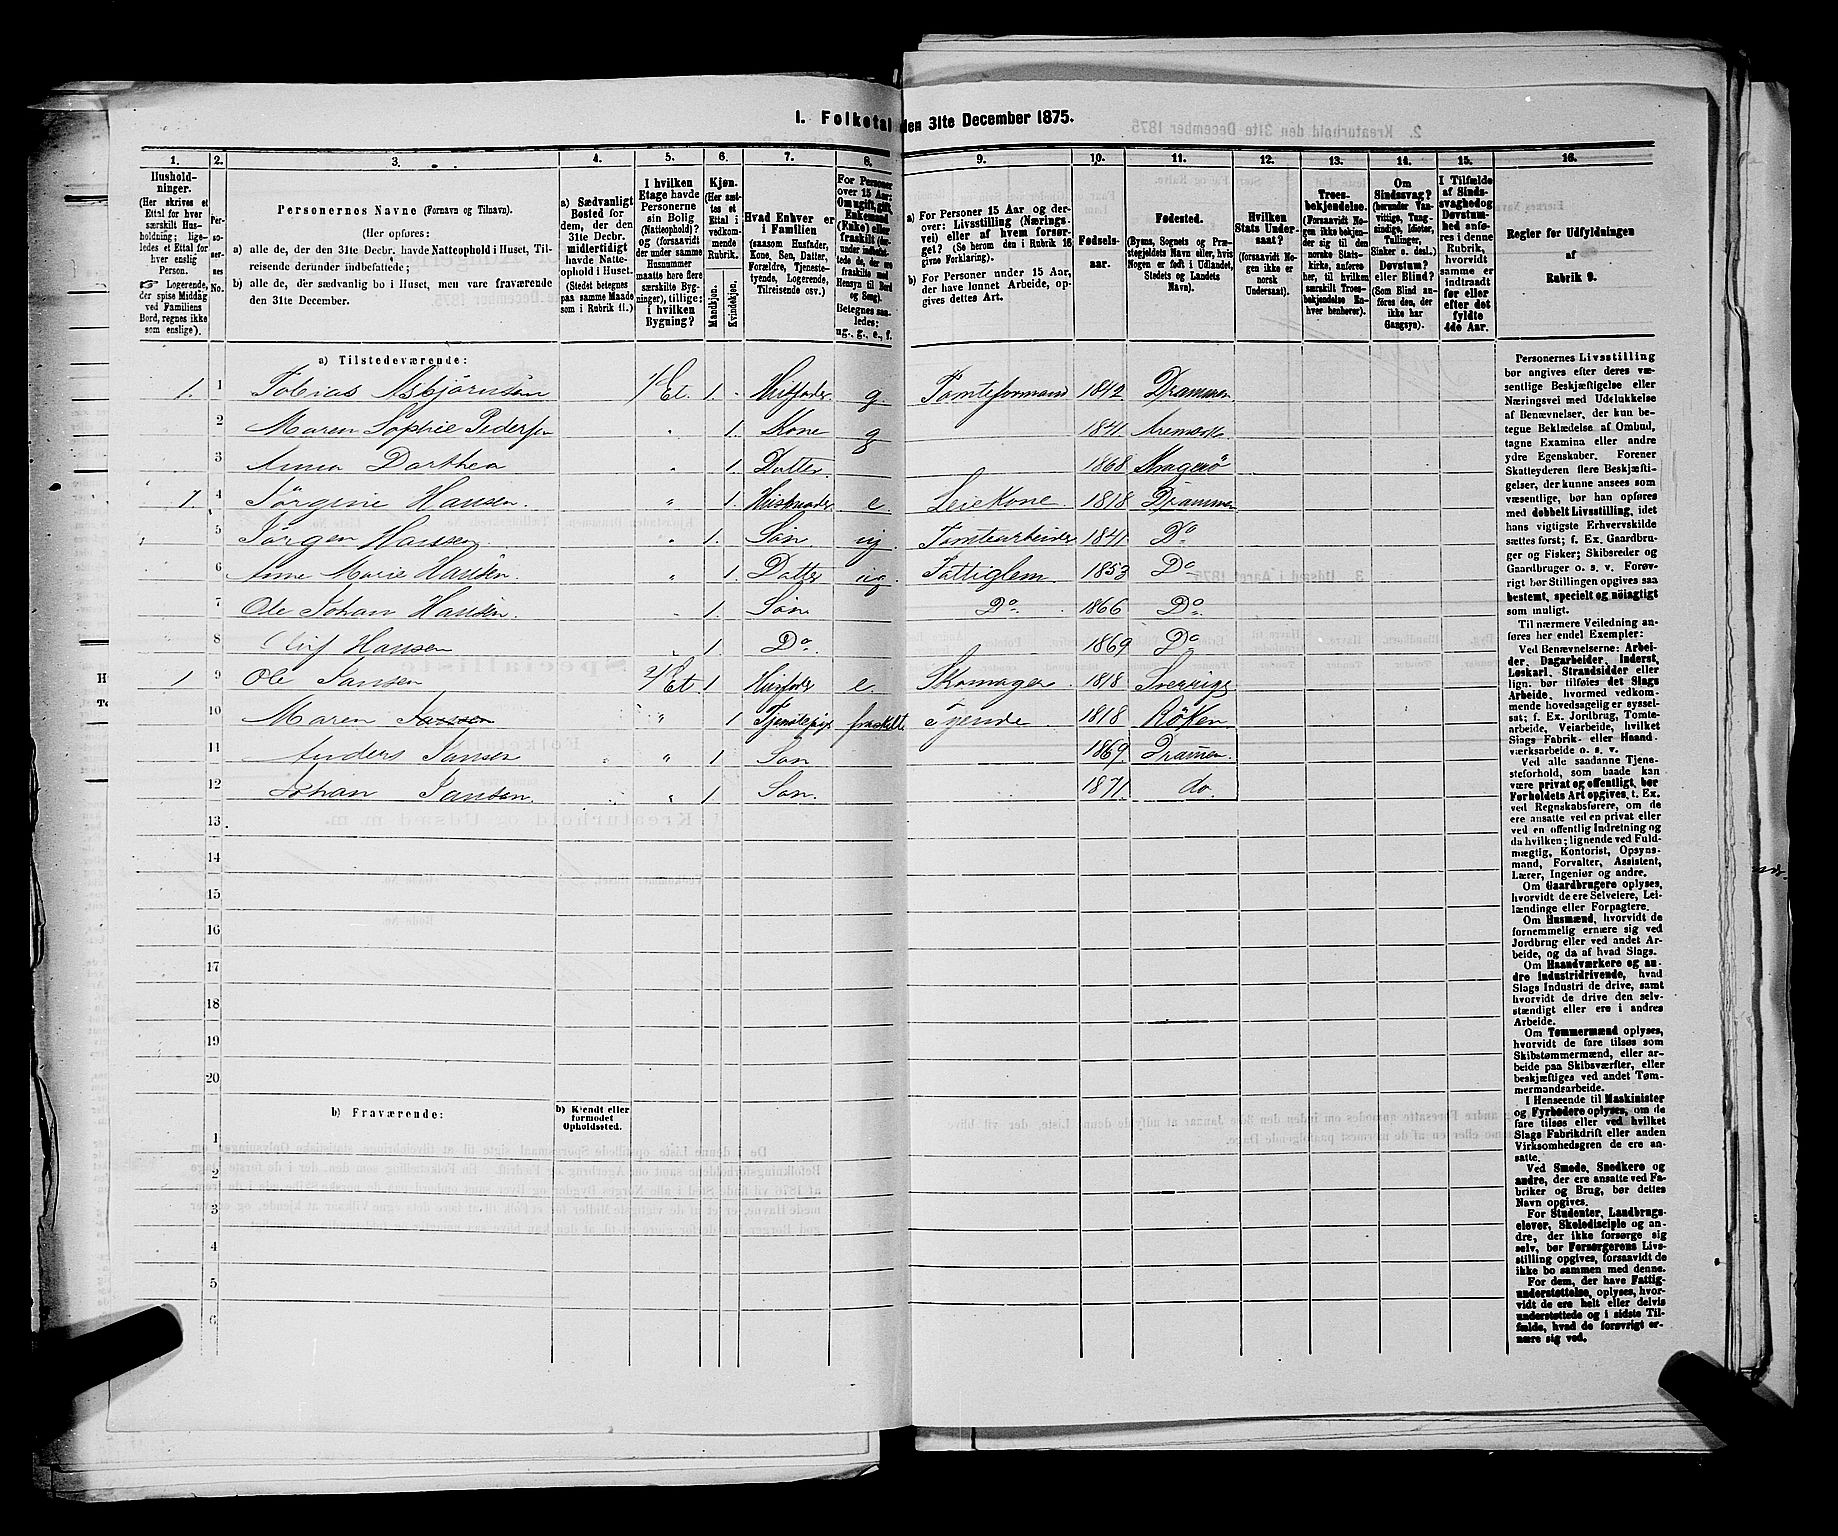 1. Folketal den 31te December 1875.
1. 2. 3. 4. 5. 6. 7. 8. 9. 10. 11. 12. 13. 14. 15. 16.
Husholdninger. (Her skrives et Ettal for hver særskilt Husholdning; ligeledes et Ettal for hver enslig Person. Logerende, der spise Middag ved Familiens Bord, regnes ikke som enslige).
Personernes No.
Personernes Navne (Fornavn og Tilnavn).
(Her opføres:
a) alle de, der den 31te Decbr. havde Natteophold i Huset, Tilreisende derunder indbefattede;
b) alle de, der sædvanlig bo i Huset, men vare fraværende den 31te December.
a) Sædvanligt Bosted for dem, der den 31te Decbr. midlertidigt havde Natteophold i Huset. (Stedet betegnes paa samme Maade som i Rubrik 11.)
I hvilken Etage havde Personerne sin Bolig (Natteophold)? og (forsaavidt der under samme Husnummer maatte høre flere særskilte Bygninger), tillige: i hvilken Bygning?
Kjøn. (Her sættes et Ettal i vedkommende Rubrik.
Mandkjøn. Kvindekjøn.
Hvad Enhver er i Familien (saasom Husfader, Kone, Søn, Datter, Forældre, Tjenestetyende, Logerende, Tilreisende osv.)
For Personer over 15 Aar: Om ugift, gift, Enkemand (Enke) eller fraskilt (derunder indbefattede de, der ere fraskilte med Hensyn til Bord og Seng). Betegnes saaledes: ug., g., e., f.
a) For Personer 15 Aar og derover: Livsstilling (Næringsvei) eller af hvem forsørget? (Se herom den i Rubrik 16 givne Forklaring).
b) For Personer under 15 Aar, der have lønnet Arbeide, opgives dettes Art.
Fødselsaar.
Fødested. (Byens, Sognets og Præstegjeldets Navn eller, hvis Nogen er født i Udlandet, Stedets og Landets Navn).
Hvilken Stats Undersaat? (forsaavidt Nogen ikke er norsk Undersaat).
Troesbekjendelse. (Forsaavidt Nogen ikke bekjender sig til den norske Statskirke, anføres her, til hvilken særskilt Troesbekjendelse Enhver henhører).
Om Sindssvag? (herunder Vanvittige, Tungsindige, Idioter, Tullinger, Sinker o. desl.) Døvstum? eller Blind? (Som Blind anføres den, der ikke har Gangsyn).
I Tilfælde af Sindssvaghed og Døvstumhed anføres i denne Rubrik, hvorvidt samme er indtraadt før eller efter det fyldte 4de Aar.
Regler for Udfyldningen af Rubrik 9.
a) Tilstedeværende:
1. 1 Tobias Asbjørnsen 1/Et. 1. Husfader g. Tomteformand 1842 Drammen
2 Maren Sophie Pedersen " 1. Kone g 1841. Aremark
3 Anna Dorthea " 1. Datter 1868 Kragerö
1. 4 Jörgine Hansen. " 1. Husmoder e. Leiekone 1818 Drammen
5 Jörgen Hansen " 1. Sön ug. Tomtearbeider 1841 Do
6 Anne Marie Hansen. " 1. Datter ug. Fattiglem. 1853 Do
7 Ole Johan Hansen. 1. Sön Do 1866 Do
8 Hansen 1 Do. 1869 Do
1 9 Ole Jansen 2/Et 1 Husfader e. Skomager 1818 Sverrige
10 Maren Jansen " 1 Tjenestepig fraskilt Tyende 1818 Röken
11 Anders Jansen " 1 Sön 1869 Dramen.
12 Johan Jansen " 1. Sön. 1871 do.
13
14
15
16
17
18
19
20
b) Fraværende:
b) Kjendt eller formodet Opholdssted.
1
2
3
4
5
6
Personernes Livsstilling
bør angives efter deres væ-
sentlige Beskjæftigelse eller
Næringsvei med Udelukkelse
af Benævnelser, der kun be-
tegne Beklædelse af Ombud,
tagne Examina eller andre
ydre Egenskaber. Forener
Skatteyderen flere Beskjæfti-
gelser, der kunne ansees som
væsentlige, bør han opføres
med dobbelt Livsstilling, idet
hans vigtigste Erhvervskilde
sættes først; f. Ex. Gaardbru-
ger og Fisker; Skibsreder og
Gaardbruger o. s. v. Forøv-
rigt bør Stillingen opgives saa
bestemt, specielt og nöiagtigt
som muligt.
Til nærmere Veiledning an-
føres her endel Exempler:
Ved Benævnelserne: Arbei-
der, Dagarbeider, Inderst,
Løskarl, Strandsidder eller
lign. bør tilføies det Slags
Arbeide, hvormed vedkom-
mende hovedsagelig er syssel-
sat; f. Ex. Jordbrug, Tomte-
arbeide, Veiarbeide, hvilket
Slags Fabrik- eller Haand-
værksarbeide o. s. v.
Ved alle saadanne Tjene-
steforhold, som baade kan
være privat og offentligt, bør
Forholdets Art opgives, t. Ex.
ved Regnskabsførere, om de
ere ansatte ved en privat eller
ved en offentlig Indretning og
da hvilken; lignende ved Fuld-
mægtig, Kontorist, Opsyns-
mand, Forvalter, Assistent,
Lærer, Ingeniør og andre.
Om Gaardbrugere oplyses,
hvorvidt de ere Selveiere, Lei-
lændinge eller Forpagtere.
Om Husmænd, hvorvidt de
fornemmelig ernære sig ved
Jordbrug eller ved andet Ar-
beide, og da af hvad Slags.
Om Haandværkere og an-
dre Industridrivende, hvad
Slags Industri de drive, samt
hvorvidt de drive den selv-
stændigt eller ere i andres
Arbeide.
Om Tømmermænd oplyses,
hvorvidt de fare tilsøs som
Skibstømmermænd, eller ar-
beide paa Skibsværfter, eller
beskjæftiges ved andet Tøm-
mermandsarbeide.
I Henseende til Maskinister
og Fyrbødere oplyses, om de
fare tilsøs eller ved hvilket
Slags Fabrikdrift eller anden
Virksomhedsgren de ere an-
satte.
Ved Smede, Snedkere og
andre, der ere ansatte ved Fa-
briker og Brug, bør dettes
Navn opgives.
For Studenter, Landbrugs-
elever, Skoledisciple og an-
dre, der ikke forsørge sig
selv, bør Forsørgerens Livs-
stilling opgives, forsaavidt de
ikke bo sammen med denne.
For dem, der have Fattig-
understøttelse, oplyses, hvor-
vidt de ere helt eller delvis
understøttede og i sidste Til-
fælde, hvad de forøvrigt er-
nære sig ved.